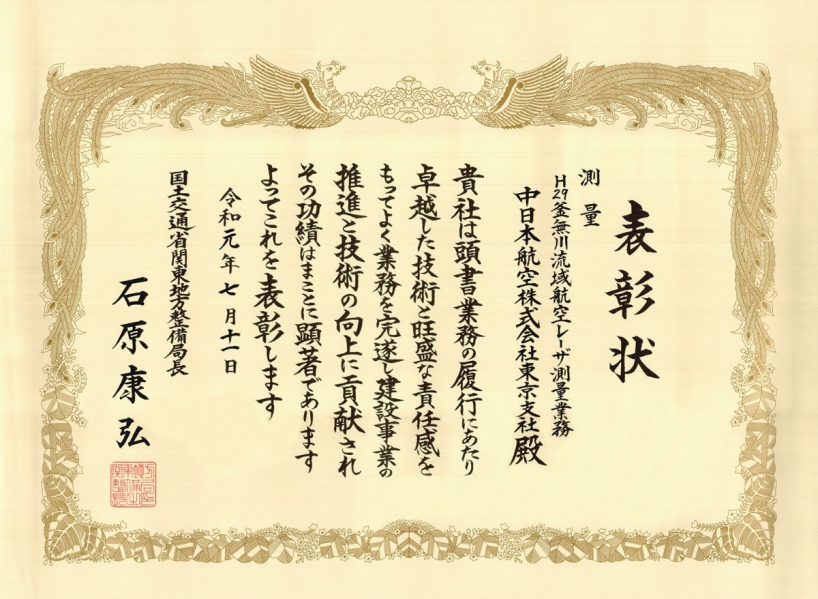 表彰状
測量
H29釜無川流域航空レーザ測量業務
中日本航空株式会社東京支社殿
貴社は頭書業務の履行にあたり
卓越した技術と旺盛な責任感を
もってよく業務を完遂し建設事業の
推進と技術の向上に貢献され
その功績はまことに顕著であります
よってこれを表彰します
令和元年七月十一日
国土交通省関東地方整備局長
石原康弘